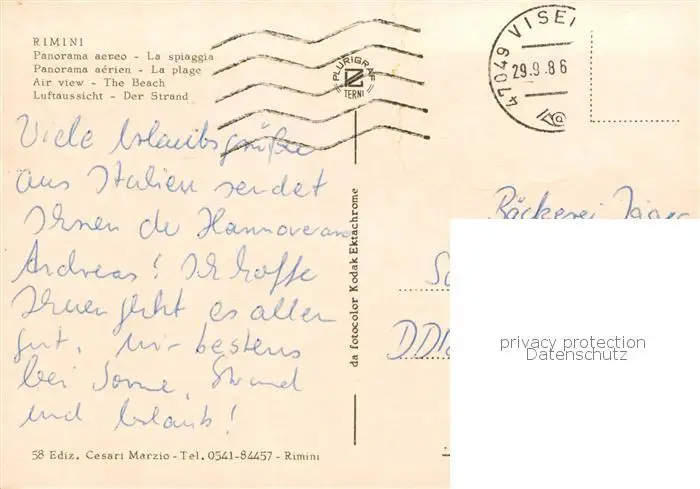 RIMINI
Panorama aereo - La spiaggia
Panorama aérien - La plage
Air view - The Beach
Luftaussicht - Der Strand
PLURIGRAF
TERNI
47049 VISEI
29.9.86
Viele Urlaubsgrüße
aus Italien sendet
Ihnen der Hannoveraner
Andreas! Ich hoffe
Ihnen geht es allen
gut, mir bestens
bei Sonne, Strand
und Urlaub!
da fotocolor Kodak Ektachrome
Bäckerei Jäger
DDR
privacy protection
Datenschutz
58 Ediz. Cesari Marzio - Tel. 0541-84457 - Rimini